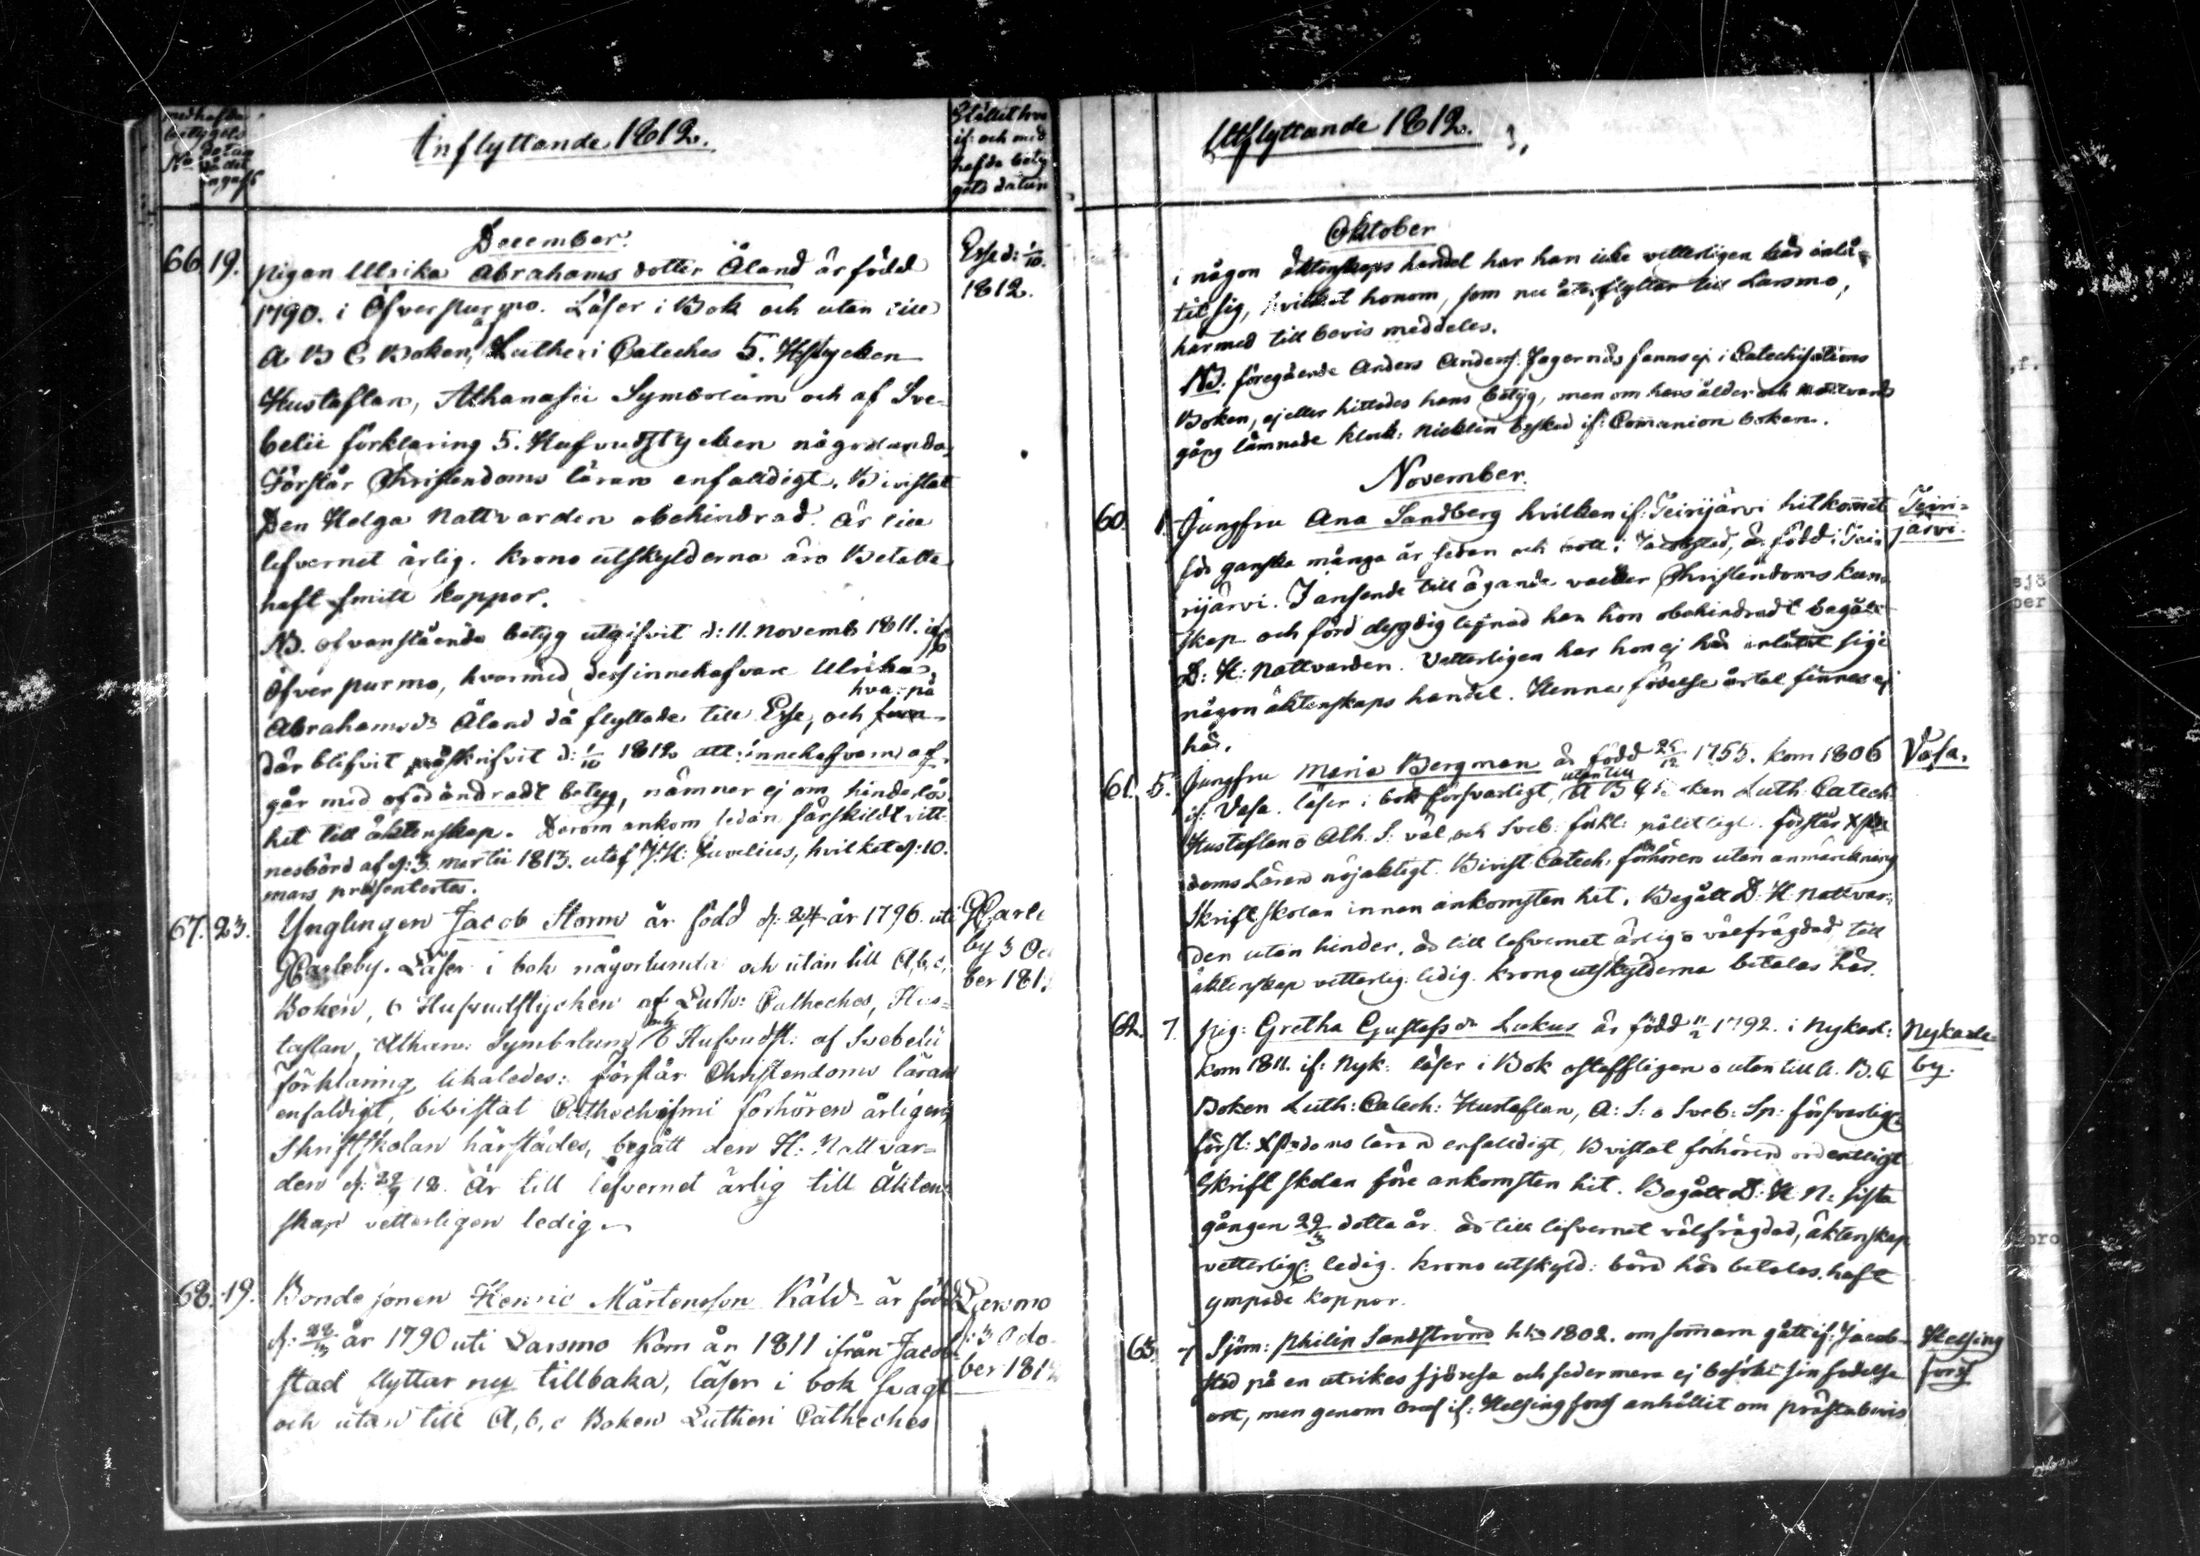 Inflyttande 1812.
December.
66. 19. pigan Ulrika Abrahams dotter Åland är född
1790. i Öfverpurmo. Läser i Bok och utan till
A B C Boken, af Lutheri Cateches 5. Hstycken
Hustaflan, Athanasii Symbolum och af Sve-
belii förklaring 5. Hufvudstycken någorlunda.
Förstår Christendoms läran enfalldigt. Bivistat
Den Helga Nattvarden obehindrad. Är till
lefvernet ärlig. Krono utskylderna äro Betalte
haft smitt koppor.
NB. ofvanstående betyg utgifvit d: 11. Novemb 1811. if
Öfver purmo, hvarmed dess innehafvare Ulrika
Abrahamsdr Åland då flyttade till Esse, och hvarpå
där blifvit påskrifvit d: 1/10 1812 att innehafvaren af
går med oförändradt betyg, nämner ej om hinderlös
het till äktenskap. Derom ankom sedan särskildt vitt
nesbörd af d: 3 martii 1813. utaf J. H: Juvelius, hvilket d: 10.
mars præsentertes.
Esse d: 1/10.
1812.
67. 23. Ynglingen Jacob Storm är född d: 24 år 1796. uti
Carleby. Läser i bok någorlunda och utan till A, b, c,
Boken, 6 Hufvudstycken af Luth: Catheches, Hus-
taflan, Athan: Symbolum, 6 Hufvudst: af Svebelii
förklaring likaledes: förstår Christendoms läran
enfaldigt, bivistat Cathechismi förhören årligen,
Skriftskolan härstädes, begått den H: Nattvar-
den d: 12. Är till lefvernet ärlig till Äkten-
skap vetterligen ledig.
by 3 Oc
ber 181
68. 19. Bonde sonen Henric Mårtensson Käld är född
år 1790 uti Larsmo kom år 1811 ifrån Jacob
stad flyttar nu tillbaka, läser i bok svagt
och utan till A, b, c Boken Lutheri Catheches
Larsmo
ber 181
Utflyttande 1812.
Oktober
i någon äktenskaps handel har han icke vetterligen här inlå-
tit sig, hvilket honom, som nu återflyttar till Larsmo,
härmed till bevis meddeles.
NB. föregående Anders Anders: Jagernäs fanns ej i Catechisations
Boken, ej eller hittades hans betyg, men om hans ålder och nattvards
gång lämnade klock: Nicklin besked if: Comunion boken.
November.
60. 1. Jungfru Ana Sandberg hvilken if: Teirijärvi hitkommet
för ganska många år sedan och i Jacobstad, är född i Tei-
rijärvi. I anseende till ägande vacker Christendoms kun-
skap och förd dygdig lefnad har hon obehindradt begått
D: H: Nattvarden. Vetterligen har hon ej här inlåtit sig i
någon äktenskaps handel. Hennes födelse årtal finnes ej
här.
Teiri-
järvi.
61. 5. Jungfru Maria Bergman är född 25/12 1755. kom 1806
if: Vasa. läser i bok försvarligt, utantill A B C boken Luth. Catech:
Hustaflan o Ath. S: väl, och Sveb: förkl: pålitligt. förstår Xsten
doms Läran nöjaktigt. Bivist: Catech: förhören utan anmärkning
Skriftskolan innan ankomsten hit. Begått D: H. Nattvar-
den utan hinder. är till lefvernet ärlig o välfrägdad, till
äktenskap vetterlig: ledig. krono utskylderna betalas här.
Vasa.
62. 7. pig: Gretha Gustafs dr Lukus är född 11/2 1792. i Nykarl:
kom 1811. if: Nyk: läser i Bok ostaffligen o utan till A. B. C
Boken Luth: Catech: Hustaflan, A: S: o Sveb: Sp: försvarligt
först: Xstndoms läran enfalldigt, Bvistat förhören ordentligt
Skriftskolan före ankomsten hit. Begått D: H: N: sista
gången 29/3 detta år. är till lefvernet välfrägdad, äktenskap
vetterligt: ledig. krono utskyld: böra här betalas. haft
ympade koppor.
Nykarle-
by.
63. 7 Sjöm: Philip Sandström 1802. om sommarn gått if: Jacob-
stad på en utrikes sjöresa och sedermera ej besökt sin födelse
ort, men genom bref if: Helsingfors anhållit om prästabevis
Helsing
fors